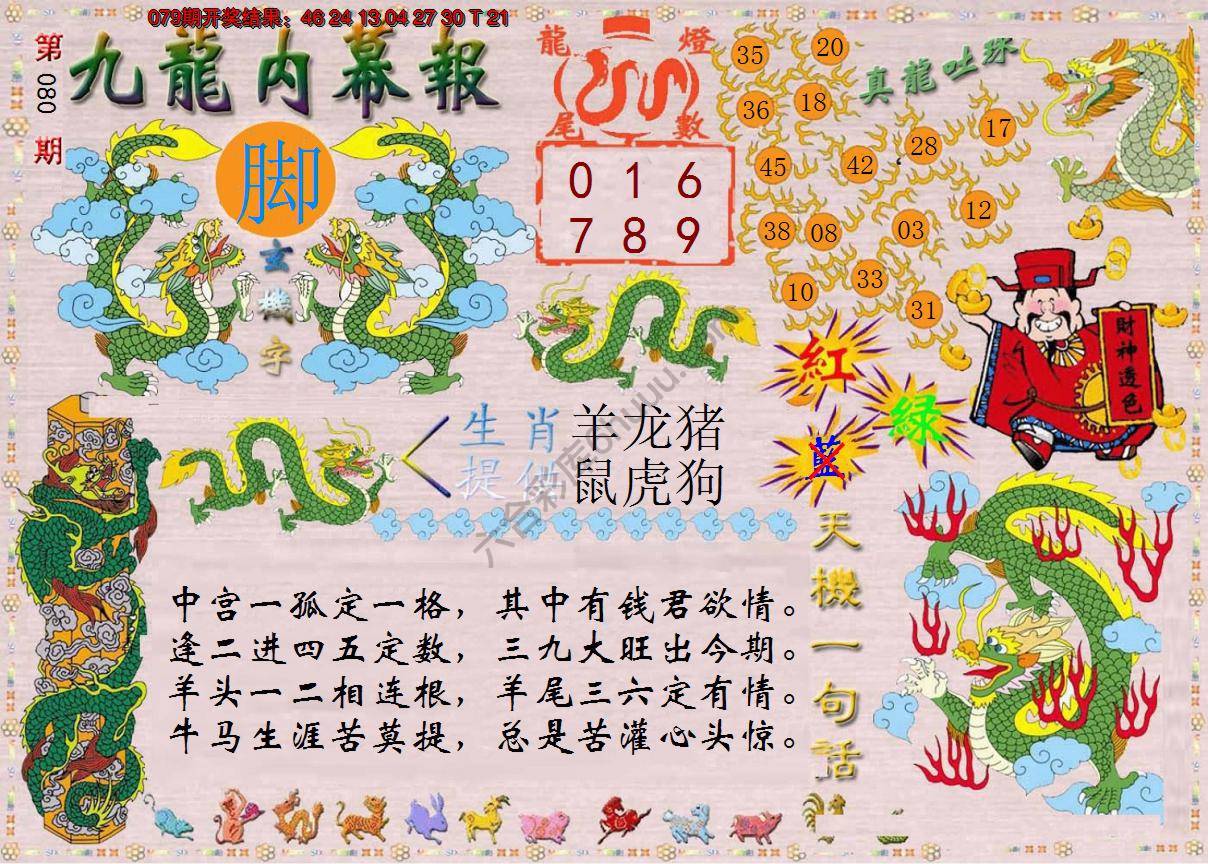 079期开奖结果：46 24 13 04 27 30 T 21
第080期
九龍内幕報
脚
玄機字
龍燈
尾數
0 1 6
7 8 9
真龍吐珠
35 20
36 18
45 42 28 17
38 08 03 12
10 33 31
紅
綠
藍
財神透色
生肖 羊龙猪
提供 鼠虎狗
中宫一孤定一格，其中有钱君欲情。
逢二进四五定数，三九大旺出今期。
羊头一二相连根，羊尾三六定有情。
牛马生涯苦莫提，总是苦灌心头惊。
天機一句話